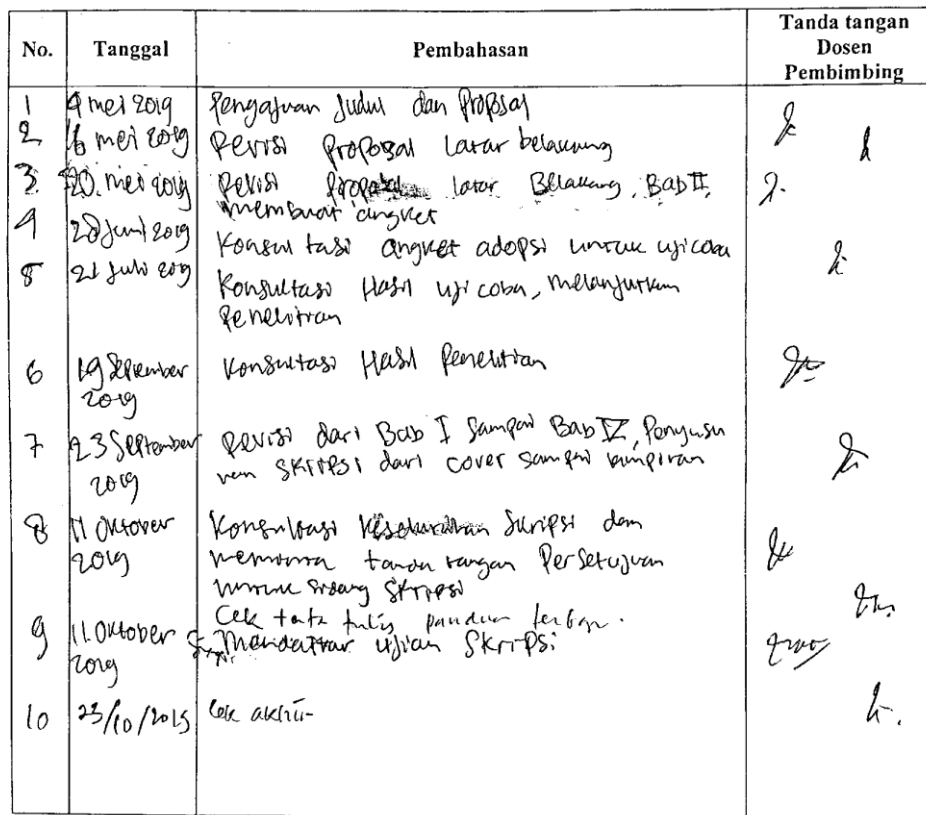 No. Tanggal Pembahasan Tanda tangan
Dosen
Pembimbing
1 9 mei 2019 Pengajuan Judul dan Proposal
2 16 mei 2019 Revisi Proposal latar belakang
3 20 mei 2019 Revisi Proposal latar Belakang, Bab II,
membuat angket
4 28 Juni 2019 Konsultasi angket adopsi untuk uji coba
5 21 Juli 2019 Konsultasi Hasil uji coba, melanjutkan
Penelitian
6 19 September Konsultasi Hasil Penelitian
2019
7 23 September Revisi dari Bab I Sampai Bab IV, Penyusu
2019 nan Skripsi dari cover sampai lampiran
8 11 Oktober Konsultasi Keseluruhan Skripsi dan
2019 meminta tanda tangan Persetujuan
untuk sidang Skripsi
Cek tata tulis panduan
9 11 Oktober Mendaftar ujian Skripsi
2019
10 23/10/2019 Cek akhir